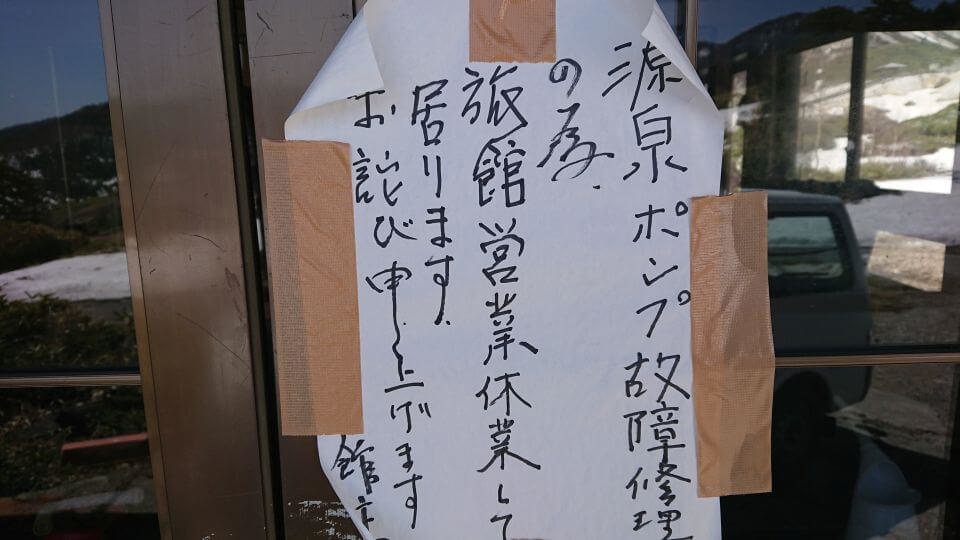 源泉ポンプ故障修理
の為.
旅館営業休業して
居ります.
お詫び申し上げます
館主